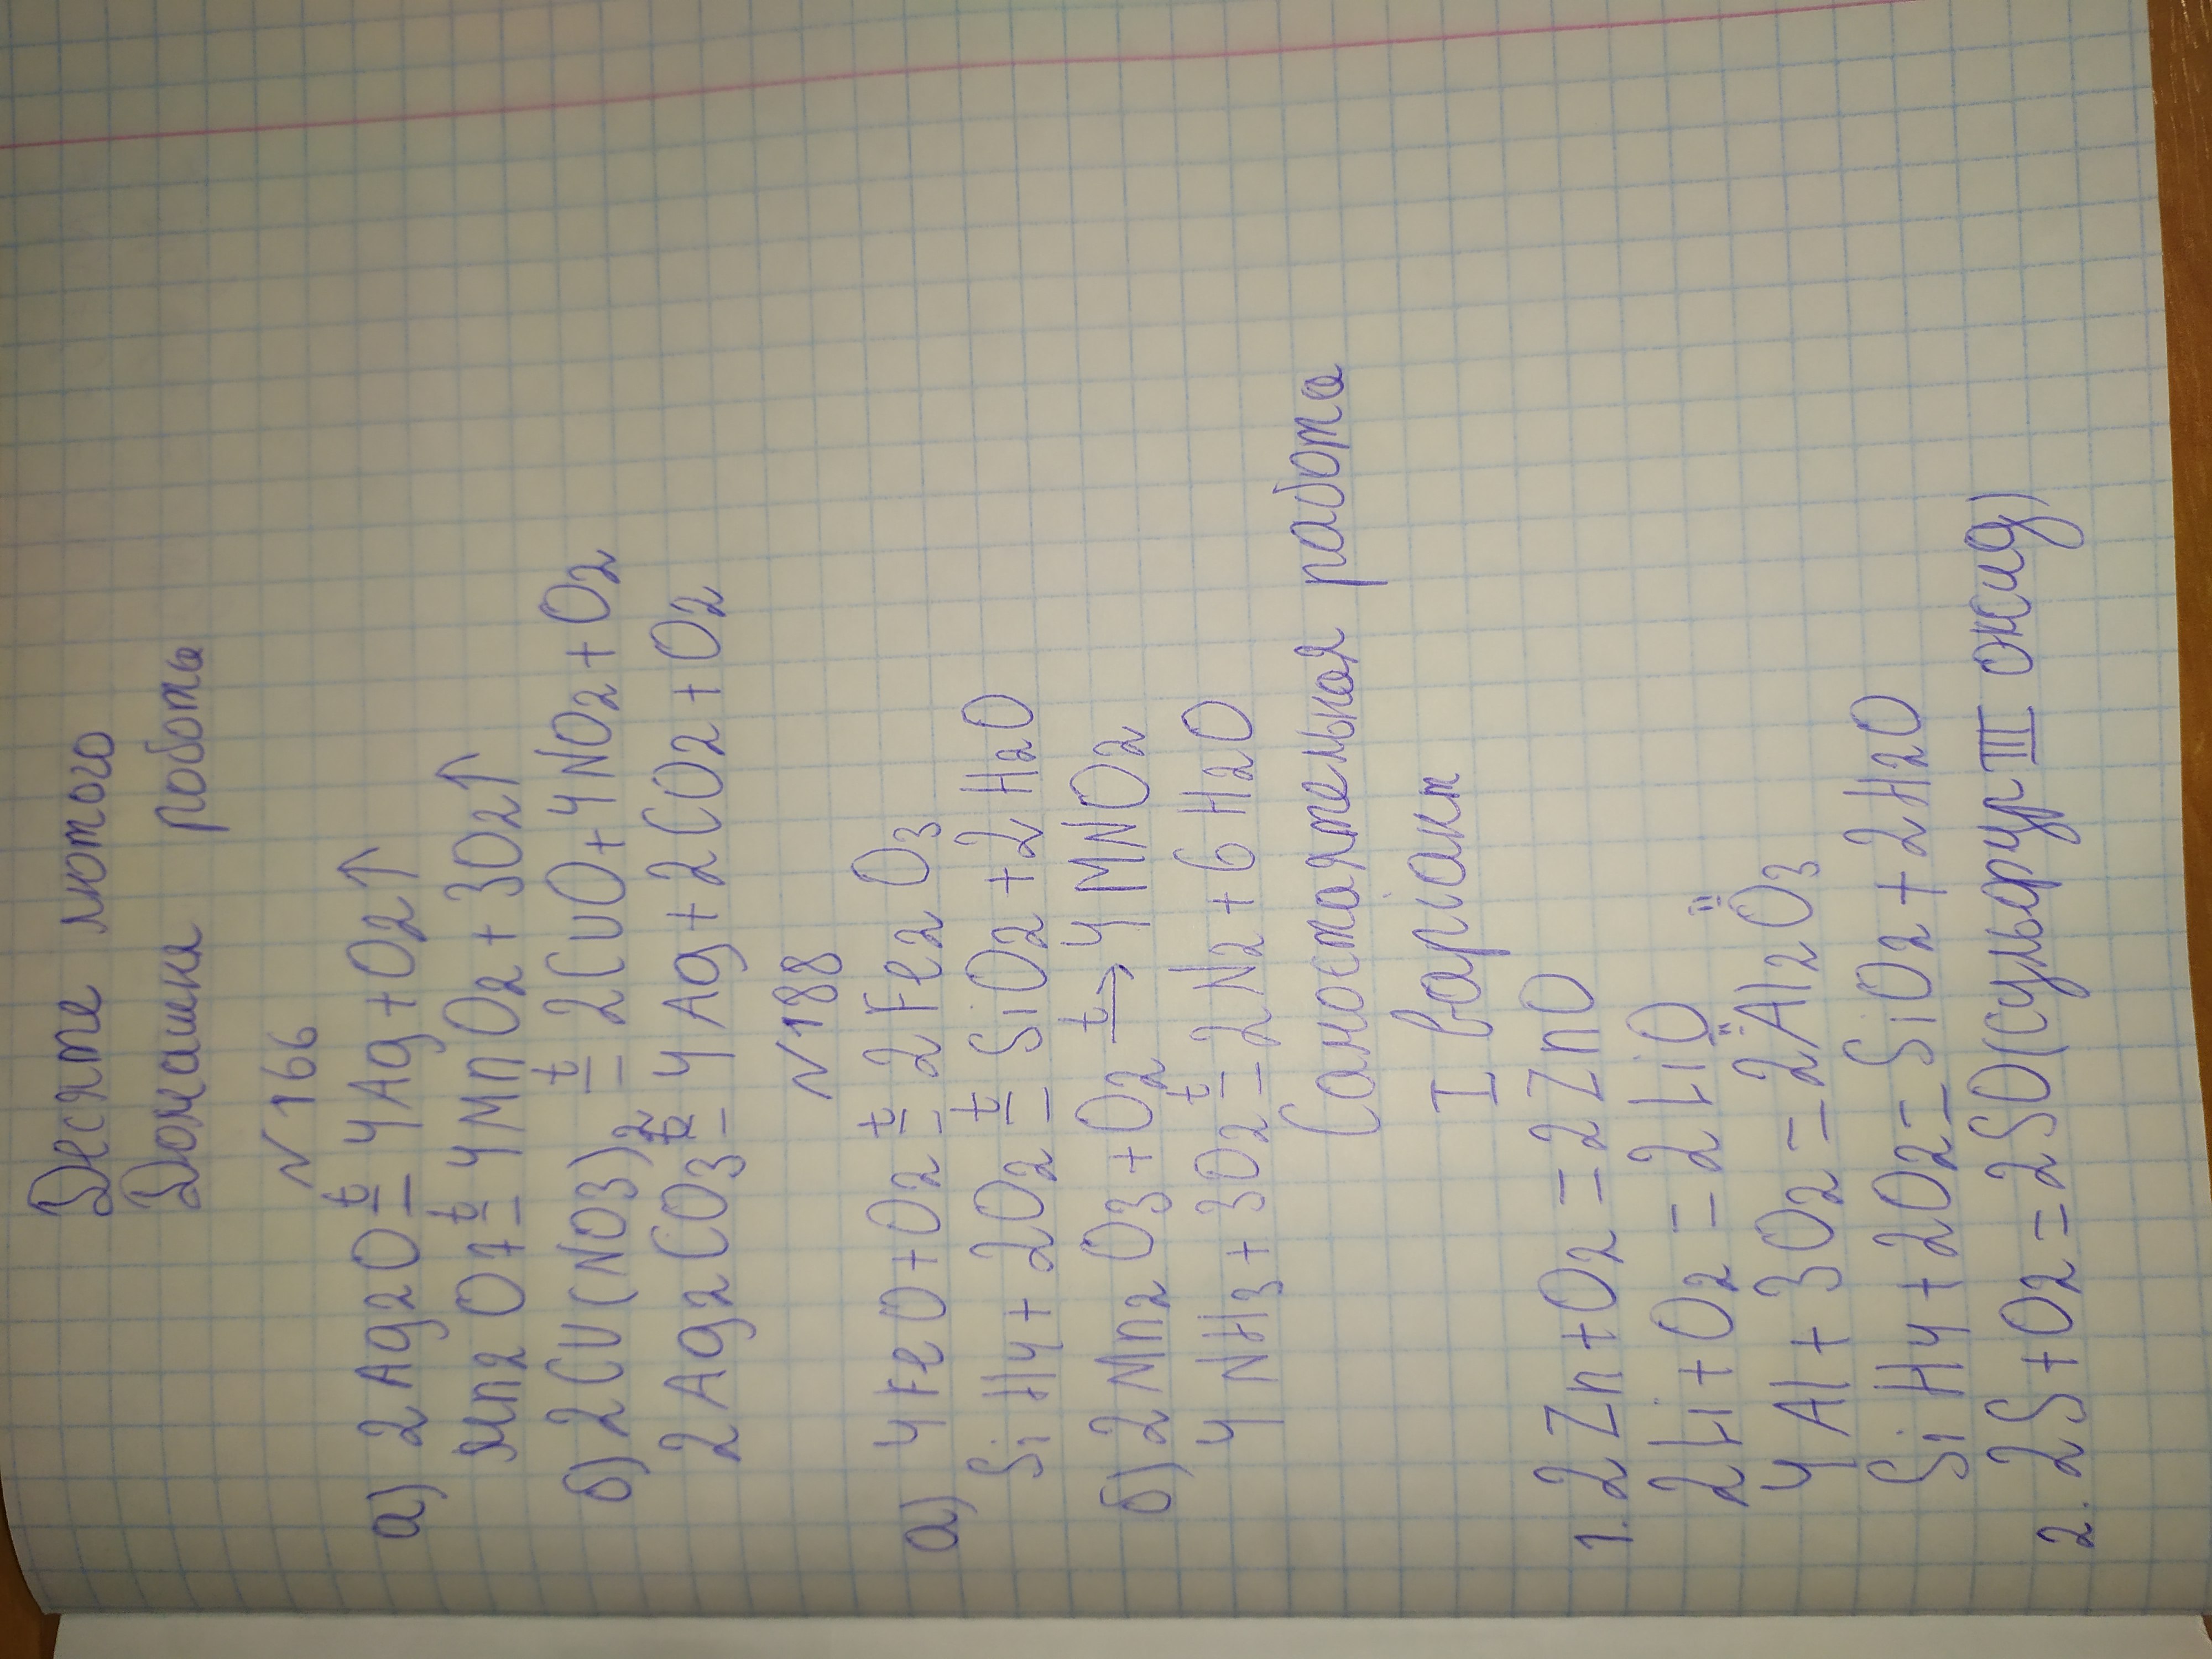 Десяте лютого
Домашня робота
N 166
а) 2Ag2O t= 4Ag+O2↑
Mn2O7 t= 4MnO2+3O2↑
б) 2Cu(NO3)2 t= 2CuO+4NO2+O2
2Ag2CO3 t= 4Ag+2CO2+O2
N 188
а) 4FeO+O2 t= 2Fe2O3
SiH4+2O2 t= SiO2+2H2O
б) 2Mn2O3+O2 t→ 4MNO2
4NH3+3O2 t= 2N2+6H2O
Самостоятельная работа
I варіант
1. 2Zn+O2=2ZnO
2Li+O2=2LiO
4Al+3O2=2Al2O3
SiH4+2O2=SiO2+2H2O
2. 2S+O2=2SO(сульфур III оксид)